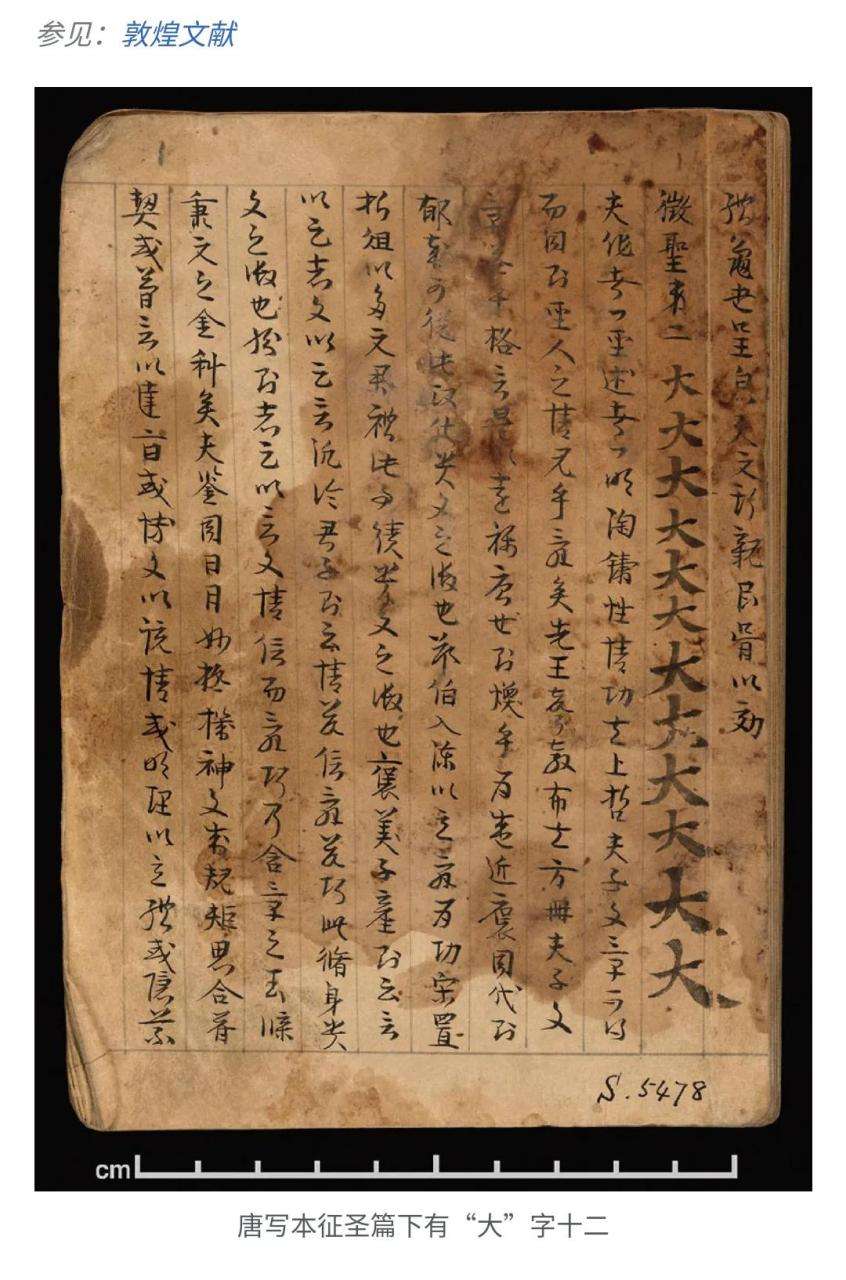 参见：敦煌文献
體龜書呈皃天文斯觀民胥以効
徵聖第二 大大大大大大大大大大大大
夫作者曰聖述者曰明陶鑄性情功在上哲夫子文章可得
而聞則聖人之情見乎辭矣先王聲教布在方冊夫子文
章乎格言是以遠稱唐世則煥乎為盛近褒周代則
郁哉可從此政化貴文之徵也鄭伯入陳以立辭為功宋置
折俎以多文舉禮此事績貴文之徵也褒美子產則云言
以足志文以足言汎論君子則云情欲信辭欲巧此脩身貴
文之徵也然則志足以言文情信而辭巧乃含章之玉牒
秉文之金科矣夫鑒周日月妙極機神文成規矩思合符
契或簡言以達旨或博文以該情或明理以立體或隱義
S.5478
cm
唐写本征圣篇下有“大”字十二